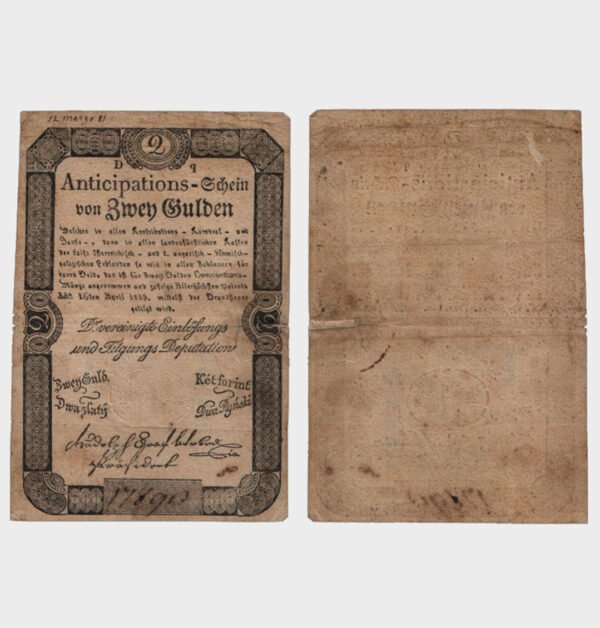 12 marzo 81
2
D q
Anticipations-Schein
von Zwey Gulden
Welcher in allen Kontributions-, Kameral- und
Banko-, dann in allen landesfürstlichen Kassen
der kais. österreichisch- und k. ungarisch- böhmisch-
galizischen Erblanden so wie in allen Zahlungen für
bares Geld, das ist für Zwey Gulden Conventions-
Münze angenommen und zufolge Allerhöchsten Patents
ddo. 16ten April 1813. mittelst der Grundsteuer
getilgt wird.
2
2
Dr. vereinigte Einlösungs
und Tilgungs Deputation
Zwey Guld.
Két forint
Dwa zlatý
Dwa Ryński
Präsident